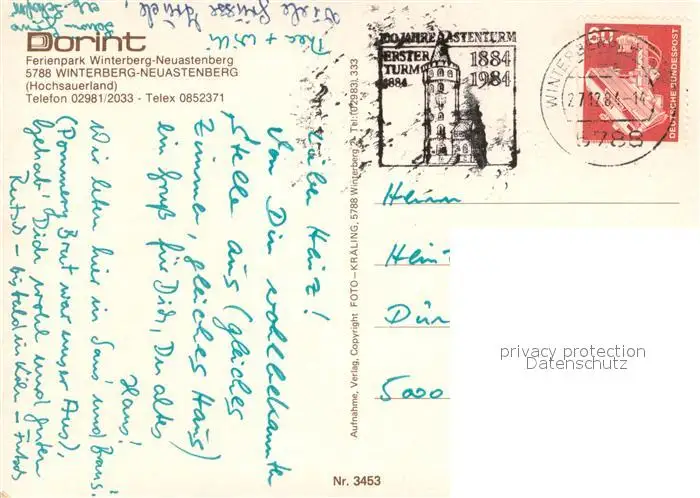 Dorint
Ferienpark Winterberg-Neuastenberg
5788 WINTERBERG-NEUASTENBERG
(Hochsauerland)
Telefon 02981/2033 - Telex 0852371
Viele Grüsse
Thea + Willi
Lieber Heinz!
Von Dir wohlbekannter
Stelle aus (gleiches
Zimmer, gleiches Haus)
ein Gruß für Dich, Du altes
Haus!
Wir leben hier in Saus' und Braus'
(Pommery Brut war unser Aus),
Gehab' Dich wohl und guten
Rutsch - bis bald in Köln -
Aufnahme, Verlag, Copyright FOTO-KRÄLING, 5788 Winterberg 2, Tel. (02983) 333
Nr. 3453
100 JAHRE ASTENTURM
ERSTER
TURM
1884
1884
1984
WINTERBERG
27.12.84-14
5788
60
DEUTSCHE BUNDESPOST
Herrn
Hein
Dür
5000
privacy protection
Datenschutz